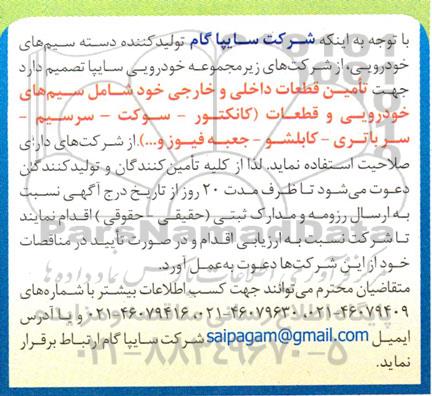 با توجه به اینکه شرکت سایپا گام تولیدکننده دسته سیم‌های
خودرویی، از شرکت‌های زیرمجموعه خودرویی سایپا تصمیم دارد
جهت تأمین قطعات داخلی و خارجی خود شامل سیم‌های
خودرویی و قطعات (کانکتور - سوکت - سرسیم -
سر باتری - کابلشو - جعبه فیوز و...) از شرکت‌های دارای
صلاحیت استفاده نماید. لذا از کلیه تأمین‌کنندگان و تولیدکنندگان
دعوت می‌شود تا ظرف مدت ۲۰ روز از تاریخ درج آگهی نسبت
به ارسال رزومه و مدارک ثبتی (حقیقی - حقوقی) اقدام نمایند
تا شرکت نسبت به ارزیابی اقدام و در صورت تأیید در مناقصات
خود از این شرکت‌ها دعوت به‌عمل آورد.
متقاضیان محترم می‌توانند جهت کسب اطلاعات بیشتر با شماره‌های
۰۲۱-۴۶۰۷۹۴۰۹، ۰۲۱-۴۶۰۷۹۶۳۰، ۰۲۱-۴۶۰۷۹۴۱۶ و یا آدرس
ایمیل saipagam@gmail.com شرکت سایپا گام ارتباط برقرار
نماید.
ParsNamadData
۰۲۱-۸۸۳۴۹۶۷۰-۵